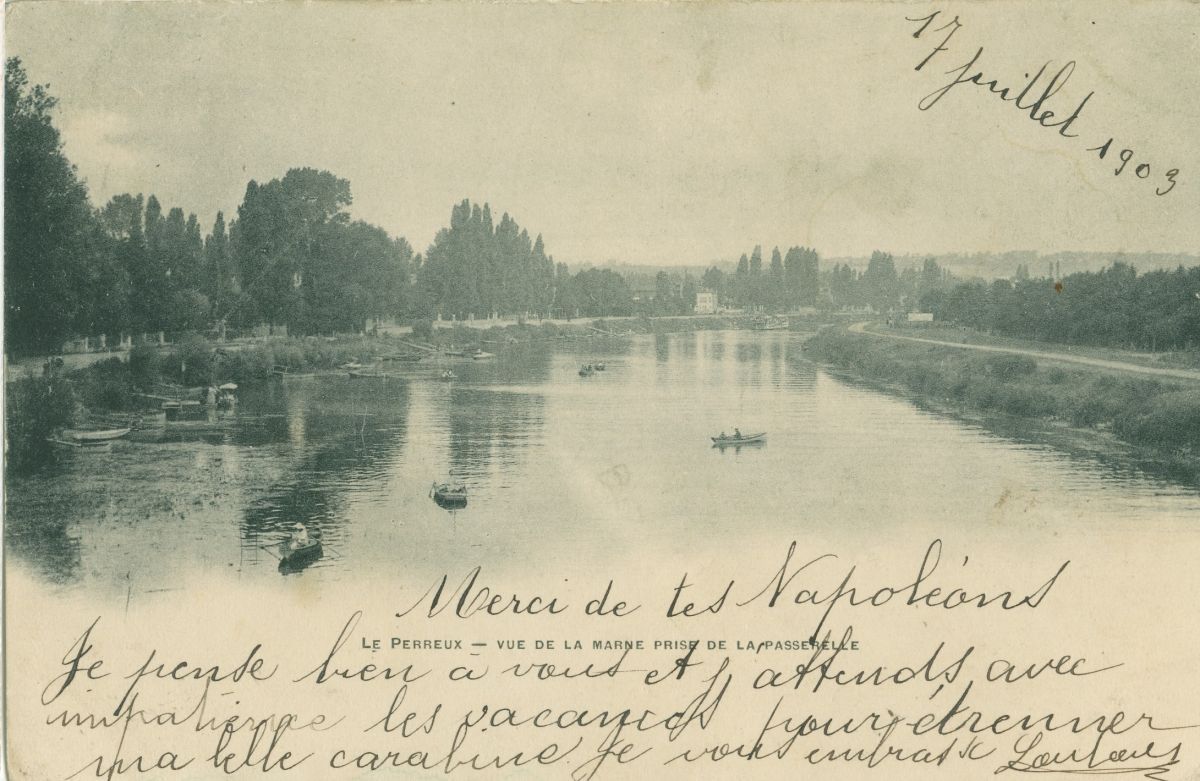 17 juillet 1903
Merci de tes Napoléons
LE PERREUX — VUE DE LA MARNE PRISE DE LA PASSERELLE
Je pense bien à vous et j'attends avec
impatience les vacances pour étrenner
ma belle carabine. Je vous embrasse